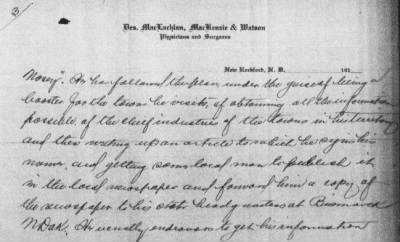 3/
Drs. MacLachlan, MacKenzie & Watson
Physicians and Surgeons
New Rockford, N. D. 191
Money". He has followed the plan, under the guise of being a
booster for the towns he visits, of obtaining all the information
possible, of the chief industries of the towns in his territory
and then writing up an article to which he signs his
name, and getting some local man to publish it
in the local newspaper and forward him a copy of
the newspaper to his state headquarters at Bismarck
N Dak. He usually endeavors to get his information